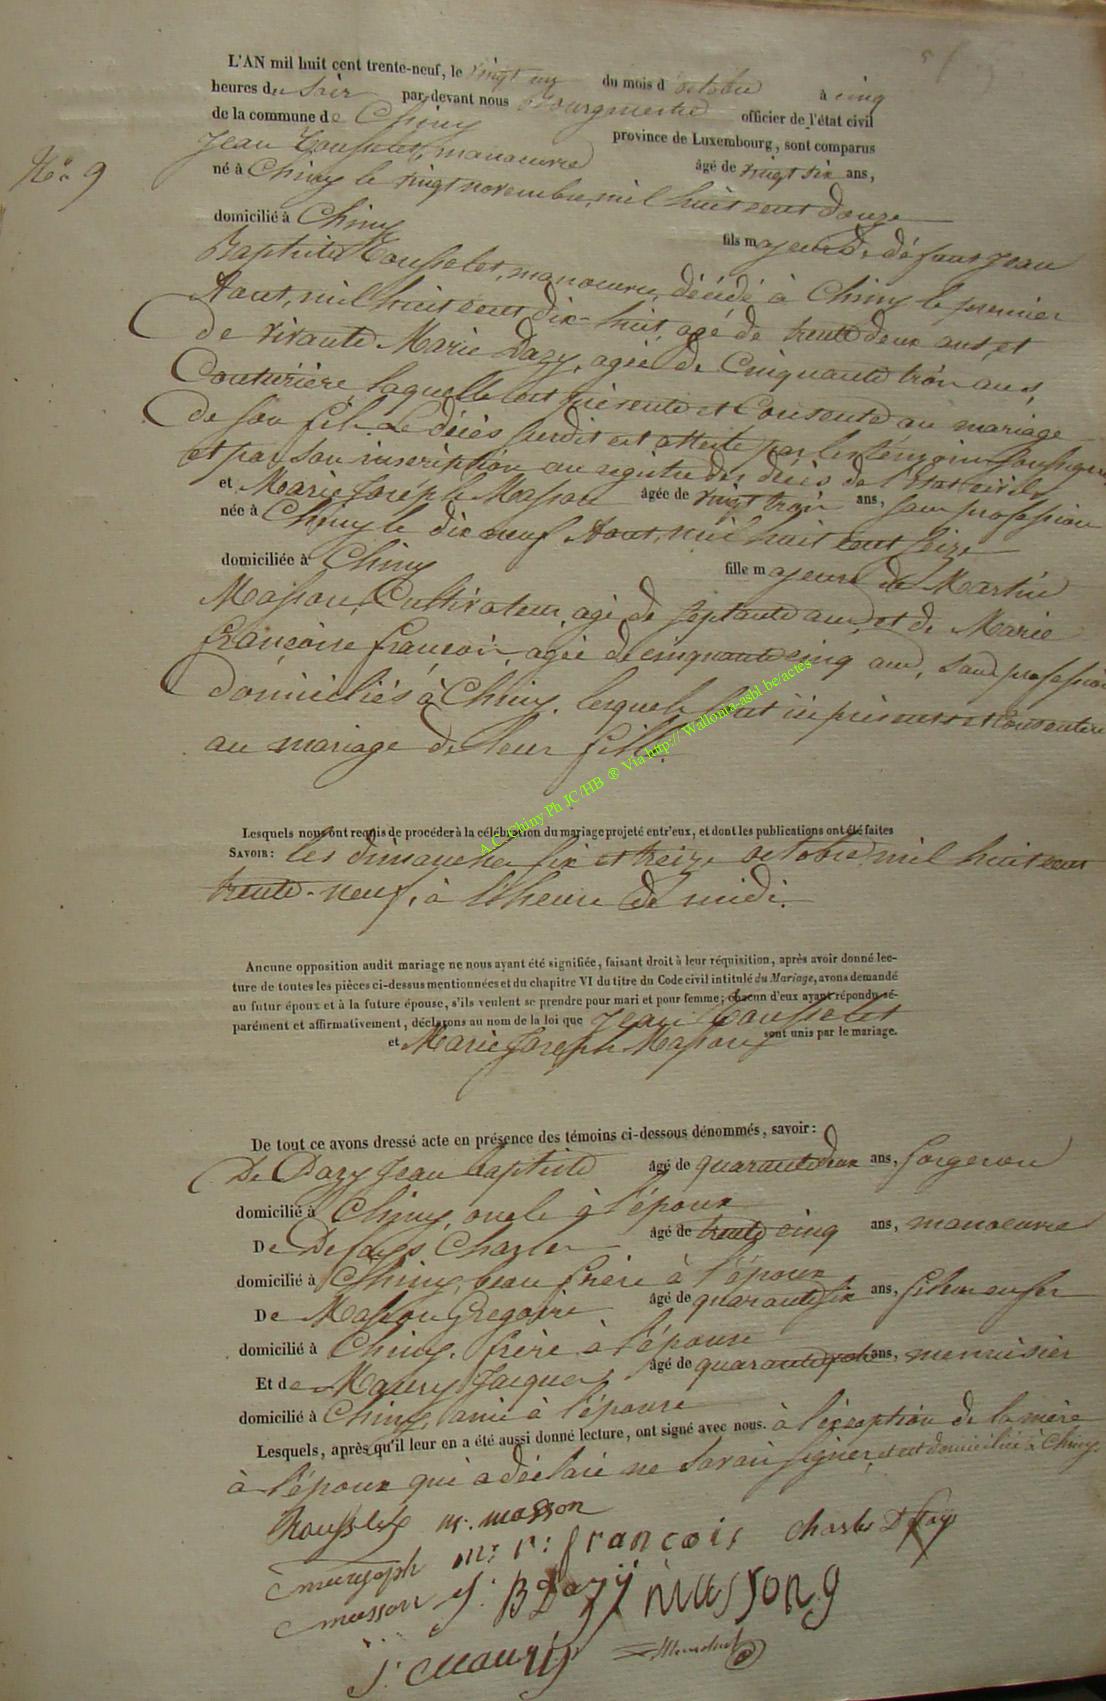 L'AN mil huit cent trente-neuf, le vingt un du mois d'octobre à cinq
heures du soir par-devant nous Bourgmestre officier de l'état civil
de la commune de Chiny province de Luxembourg, sont comparus
Jean Rousselet, manoeuvre âgé de vingt six ans,
No. 9
né à Chiny le vingt novembre, mil huit cent douze
domicilié à Chiny fils majeur de défunt Jean
Baptiste Rousselet, manoeuvre, décédé à Chiny le premier
Aout, mil huit cent dix-huit, agé de trente deux ans, et
de vivante Marie Dazy, agée de Cinquante trois ans,
Couturière, laquelle est présente et Consente au mariage
de son fils. Le décès susdit est attesté par les témoins soussignés
et par son inscription au registre des décès de l'état civil
et Marie Joseph Masson âgée de vingt trois ans, sans profession
née à Chiny le dix neuf Aout, mil huit cent seize
domiciliée à Chiny fille majeure de Martin
Masson, Cultivateur, agé de septante ans, et de Marie
françoise françois, agée de cinquante cinq ans, sans profession
domiciliés à Chiny, lesquels sont ici présents et Consentent
au mariage de leur fille.
A.C. Chiny Ph JC/HB ® Via http:// Wallonia-asbl.be/actes
Lesquels nous ont requis de procéder à la célébration du mariage projeté entr'eux, et dont les publications ont été faites
SAVOIR: les dimanches six et treize octobre mil huit cent
trente-neuf, à l'heure de midi.
Ancune opposition audit mariage ne nous ayant été signifiée, faisant droit à leur réquisition, après avoir donné lec-
ture de toutes les pièces ci-dessus mentionnées et du chapitre VI du titre du Code civil intitulé du Mariage, avons demandé
au futur époux et à la future épouse, s'ils veulent se prendre pour mari et pour femme; chacun d'eux ayant répondu sé-
parément et affirmativement, déclarons au nom de la loi que Jean Rousselet
et Marie Joseph Masson sont unis par le mariage.
De tout ce avons dressé acte en présence des témoins ci-dessous dénommés, savoir:
De Dazy Jean baptiste âgé de quarante deux ans, forgeron
domicilié à Chiny, oncle à l'époux
De Defays Charles âgé de trente cinq ans, manoeuvre
domicilié à Chiny, beau frère à l'époux
De Masson Gregoire âgé de quarante six ans,
domicilié à Chiny, frère à l'épouse
Et de Maury Jacques âgé de quarante ans, menuisier
domicilié à Chiny, ami à l'épouse
Lesquels, après qu'il leur en a été aussi donné lecture, ont signé avec nous. à l'exception de la mère
à l'époux qui a déclaré ne savoir signer, et est domiciliée à Chiny.
Rousselet m. masson
m: f: françois charles D fays
masson J. B Dazy masson g
J. Maury